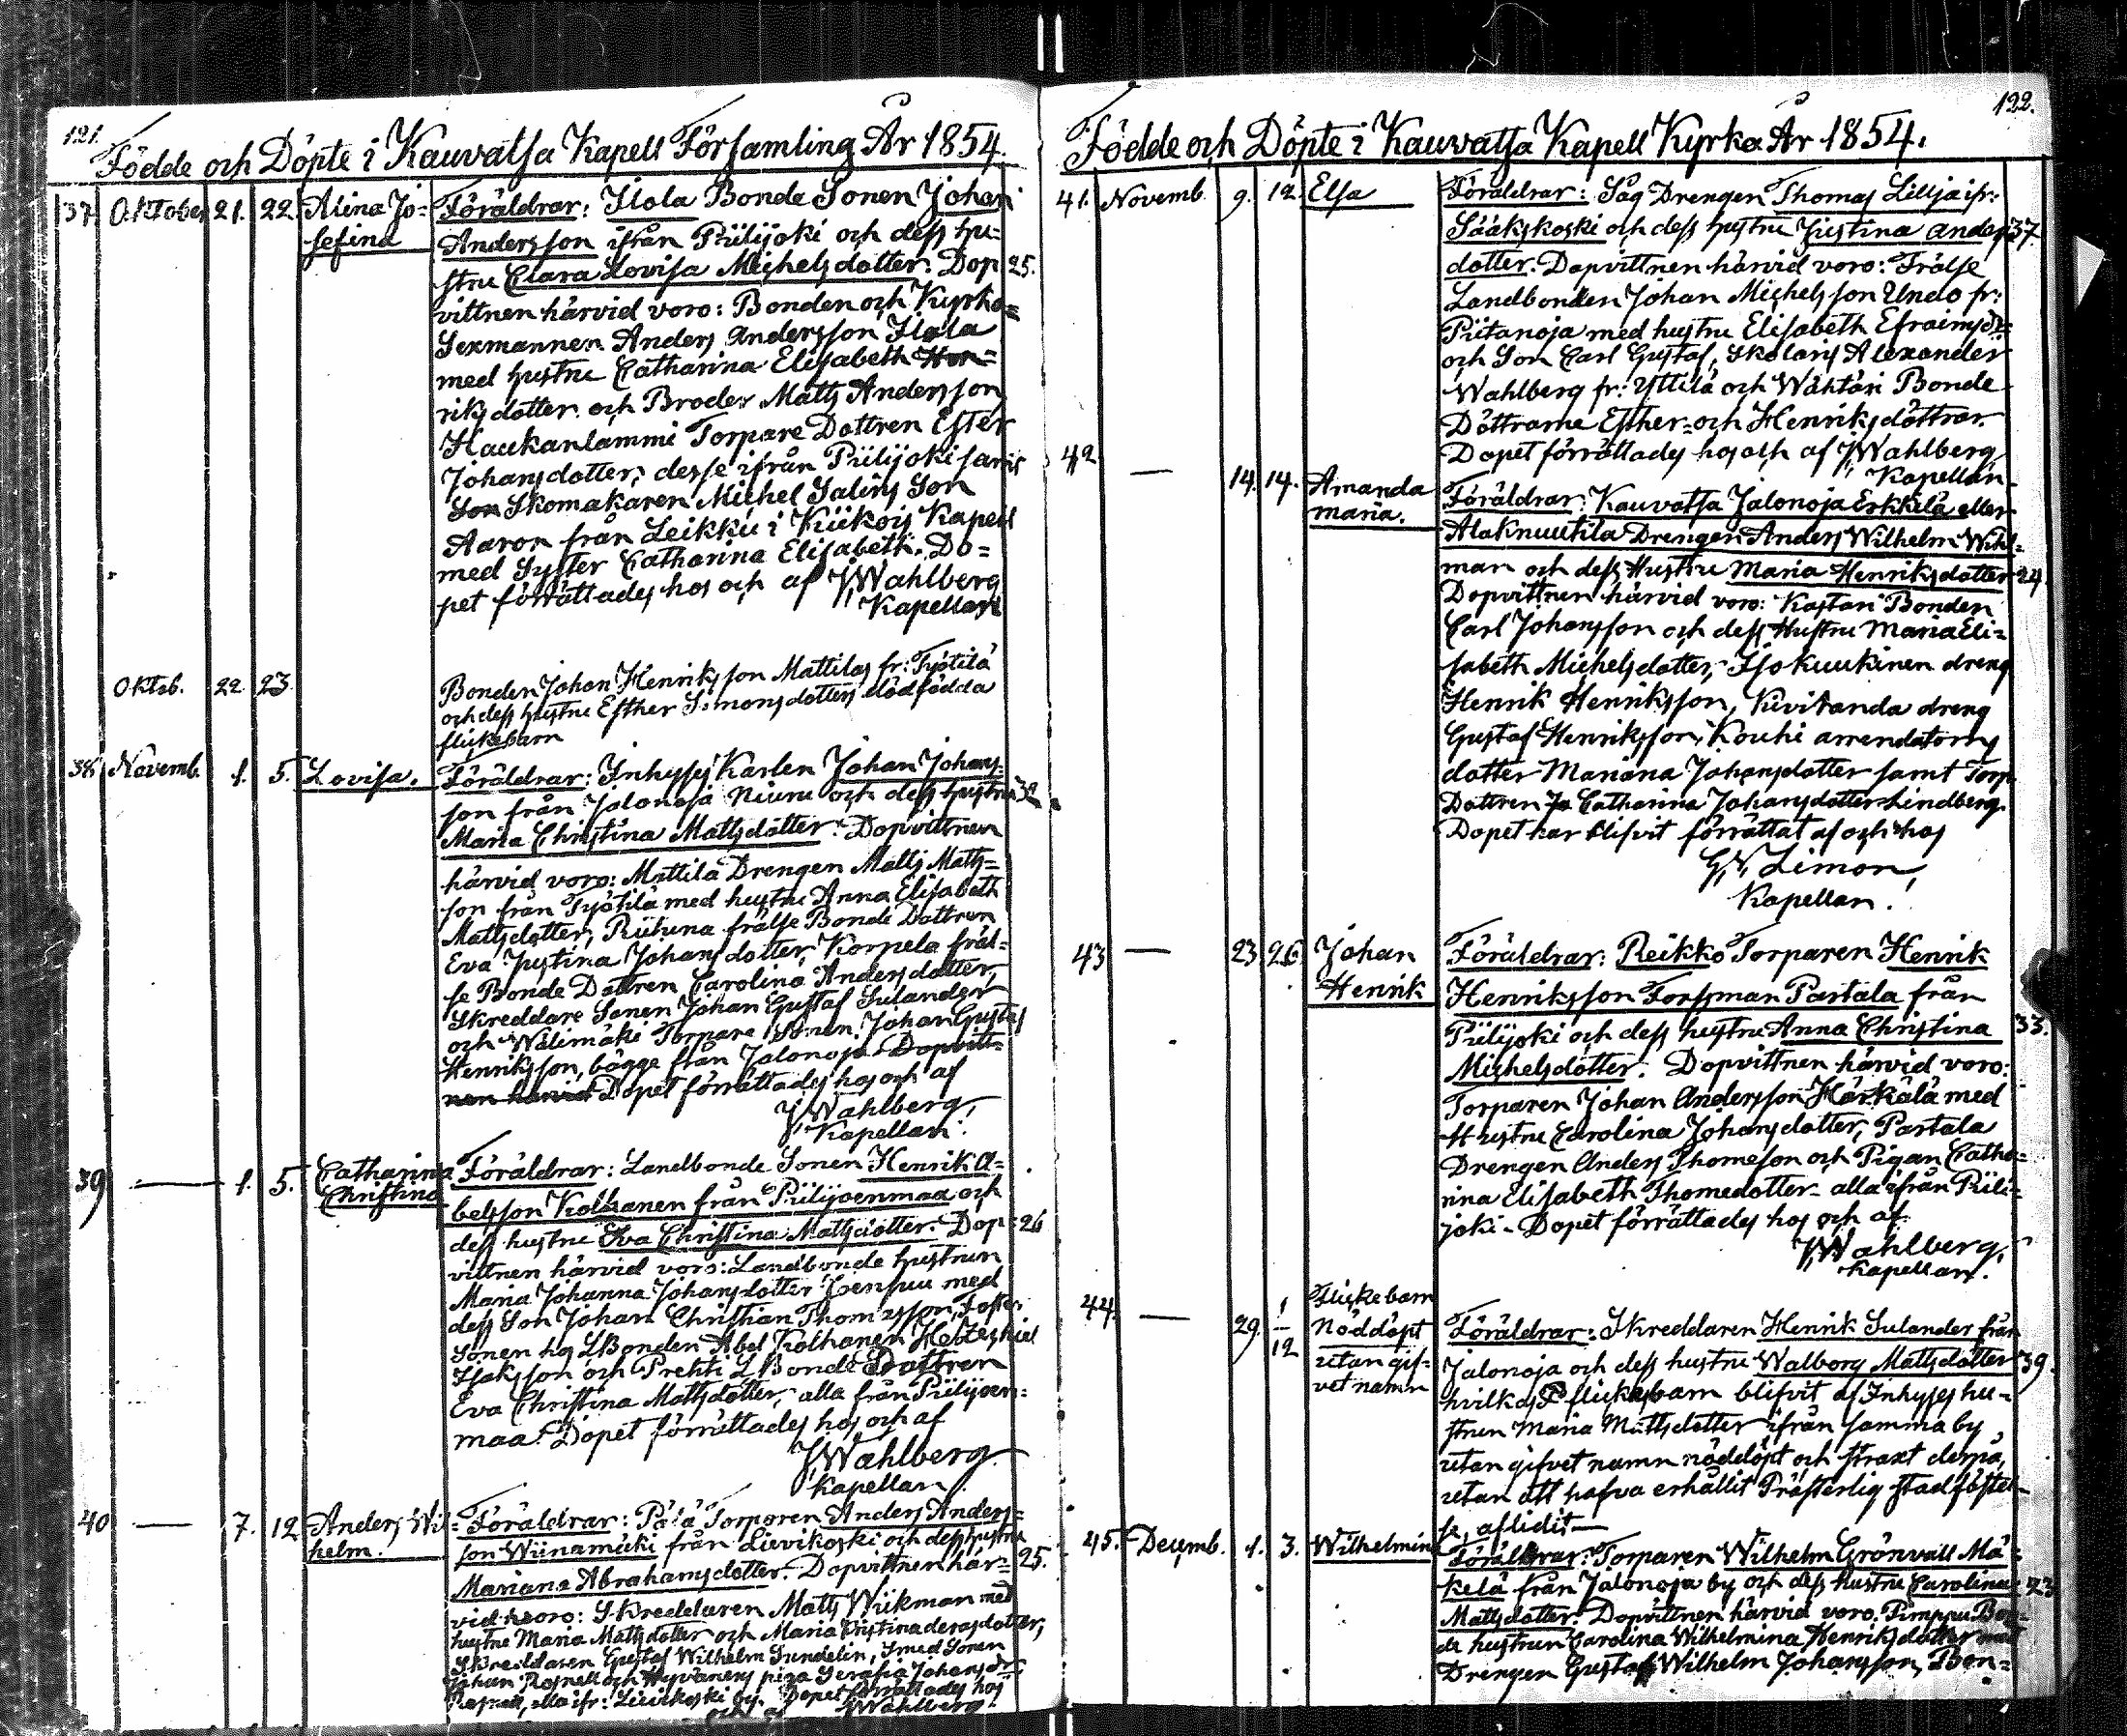 121.
Födde och Döpte i Kauvatsa Kapell Församling År 1854.
37 Oktober 21. 22. Alina Jo= Föräldrar: Ilola Bonde Sonen Johan
sefina Andersson ifrån Piilijoki och dess hu=
stru Clara Lovisa Michelsdotter. Dop 25.
vittnen härvid voro: Bonden och Kyrko=
Sexmannen Anders Andersson Ilola
med hustru Catharina Elisabeth Hen=
riksdotter och Broder Matts Andersson
Haukanlammi Torpare Dottren Ester
Johansdotter; desse ifrån Piilijoki samt
Son Skomakaren Michel Salins Son
Aaron från Leikku i Kiikois Kapell
med Syster Catharina Elisabeth. Do=
pet förrättades hos och af J. Wahlberg
Kapellan
Oktob. 22 23 Bonden Johan Henriksson Mattilas fr: Tystilä
och dess hustru Esther Simonsdotters dödfödda
flickebarn
38 Novemb. 1. 5. Lovisa. Föräldrar: Inhyses Karlen Johan Johans=
son från Jalonoja Niuru och dess hustru 32
Maria Christina Mattsdotter. Dopvittnen
härvid voro: Mattila Drengen Matts Matts=
son från Tystilä med hustru Anna Elisabeth
Mattsdotter, frälse Bonde Dottren
Eva Justina Johansdotter, Korpela fräl=
se Bonde Dottren Carolina Andersdotter,
Skreddare Sonen Johan Gustaf Sulander
och Wälimäki Torpare Sonen Johan Gustaf
Henriksson, bägge från Jalonoja. Dopvitt=
nen härvid Dopet förrättades hos och af
J. Wahlberg,
Kapellan.
39 — 1. 5. Catharina Föräldrar: Landbonde Sonen Henrik A=
Christina belsson Kolkanen från Piilijoenmaa och
dess hustru Eva Christina Mattsdotter. Dop= 26
vittnen härvid voro: Landbonde hustrun
Maria Johanna Johansdotter med
dess Son Johan Christian Thomasson, Foster
Sonen hos LBonden Abel Kolkanen Heszekiel
Isaksson och Prehti L Bonde Dottren
Eva Christina Mattsdotter, alla från Piilijoen=
maa. Dopet förrättades hos och af
J. Wahlberg
Kapellan.
40 — 7. 12 Anders Wil= Föräldrar: Torparen Anders Anders=
helm. son Wiinamäki från Lievikoski och dess hustru
Mariana Abrahamsdotter. Dopvittnen här= 25.
vid voro: Skreddaren Matts Wiikman med
hustru Maria Mattsdotter och Maria Christina deras dotter,
Skreddaren Gustaf Wilhelm Sundelin, Smed Sonen
Johan och piga Serafia Johansdr
alla ifr: Lievikoski by. Dopet förrättades hos
och af J Wahlberg.
122.
Födde och Döpte i Kauvatsa Kapell Kyrka År 1854.
41. Novemb. 9. 12. Elsa Föräldrar: Såg Drengen Thomas Lillja ifr:
Sääkskoski och dess hustru Justina Anders 37.
dotter. Dopvittnen härvid voro: Frälse
Landbonden Johan Michelsson Undo fr:
Piitanoja med hustru Elisabeth Efraimsdr=
och Son Carl Gustaf, Skolaris Alexander
Wahlberg fr: Yttilä och Wähtäri Bonde
Döttrarne Esther= och Henriksdöttrar.
Dopet förrättades hos och af J. Wahlberg
Kapellan.
42 — 14. 14. Amanda Föräldrar: Kauvatsa Jalonoja Erkkilä eller
Maria. Alaknuutila Drengen Anders Wilhelm Wihl=
man och dess Hustru Maria Henriksdotter 24.
Dopvittnen härvid voro: Kastari Bonden
Carl Johansson och dess Hustru Maria Eli=
sabeth Michelsdotter, Isokuukinen dreng
Henrik Henriksson, Kiviranda dreng
Gustaf Henriksson, Kouhi arrendatorns
dotter Mariana Johansdotter samt Torp
Dottren Catharina Johansdotter Lindberg.
Dopet har blifvit förrättat af och hos
G. V. Limon,
Kapellan.
43 — 23 26 Johan Föräldrar: Reikko Torparen Henrik
Henrik Henriksson Forssman Pastala från
Piilijoki och dess hustru Anna Christina 33.
Michelsdotter. Dopvittnen härvid voro:
Torparen Johan Andersson Härkälä med
Hustru Carolina Johansdotter, Pastala
Drengen Anders Thomeson och Pigan Catha=
rina Elisabeth Thomedotter alla ifrån Piili=
joki. Dopet förrättades hos och af
J. Wahlberg,
Kapellan.
44. — 29. 1/12 Flickebarn
Nöddöpt Föräldrar: Skreddaren Henrik Sulander från
utan gif= Jalonoja och dess hustru Walborg Mattsdotter 39.
vet namn hvilkas flickebarn blifvit af Inhyses hu=
strun Maria Mattsdotter ifrån samma by
utan gifvet namn nöddöpt och straxt derpå,
utan att hafva erhållit Prästerlig stadfästel=
se, aflidit —
45. Decemb. 1. 3. Wilhelmina Föräldrar: Torparen Wilhelm Grönvall Mä=
kelä från Jalonoja by och dess hustru Carolina 23
Mattsdotter. Dopvittnen härvid voro. Pimppu Bon=
de hustrun Carolina Wilhelmina Henriksdotter med
Drengen Gustaf Wilhelm Johansson, Bon=